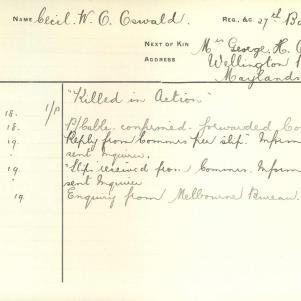 NAME Cecil. W. O. Oswald. REG. &c. 27th Ba
NEXT OF KIN Mrs George. H. O
ADDRESS Wellington
Maylands
18. 1/P "Killed in Action"
18. P/Cable. confirmed. forwarded Co
19. Reply from Commrs per slip. Inform
sent Inquirer.
19. "Slip received from Commrs. Inform
sent Inquirer
19 Enquiry from Melbourne Bureau.